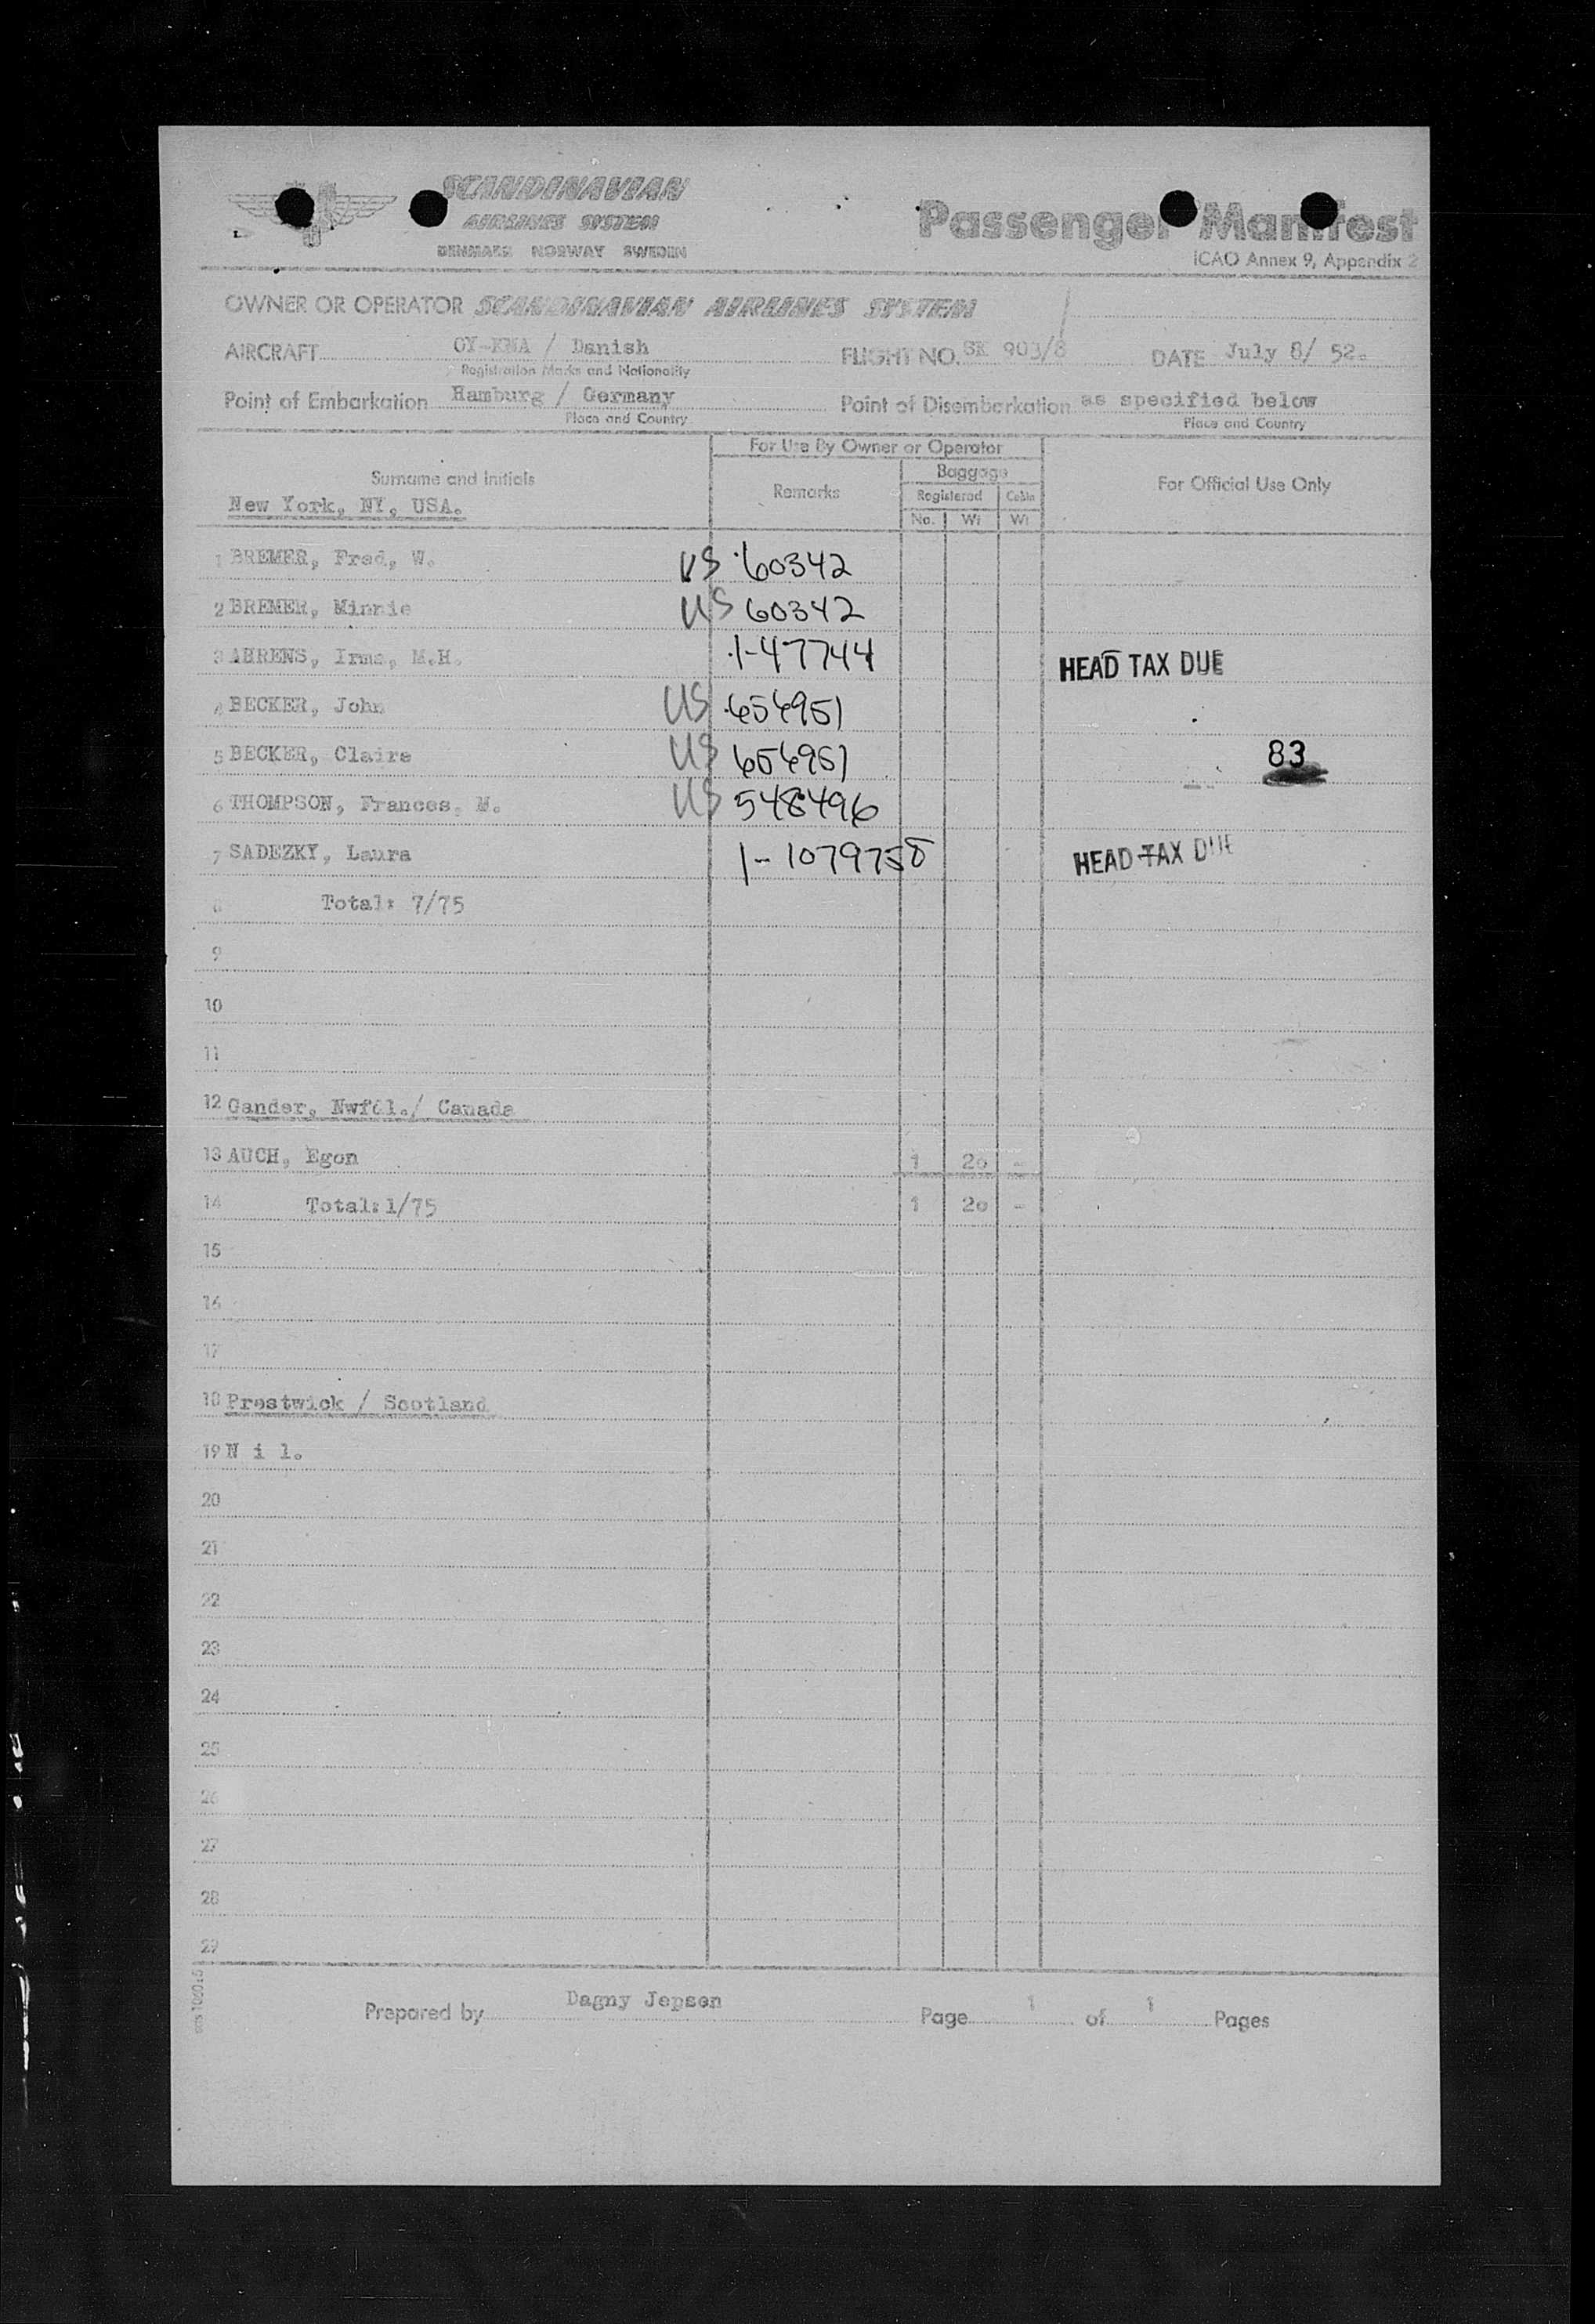 SCANDINAVIAN
AIRLINES SYSTEM
DENMARK NORWAY SWEDEN
Passenger Manifest
ICAO Annex 9, Appendix 2
OWNER OR OPERATOR SCANDINAVIAN AIRLINES SYSTEM
AIRCRAFT OY-KNA / Danish FLIGHT NO. SK 903/8 DATE July 8/ 52.
Registration Marks and Nationality
Point of Embarkation Hamburg / Germany Point of Disembarkation as specified below
Place and Country Place and Country
For Use By Owner or Operator
Surname and initials Remarks Baggage For Official Use Only
Registered Cabin
New York, NY, USA.
No. Wt Wt
1 BREMER, Fred, W. US 60342
2 BREMER, Minnie US 60342
3 AHRENS, Irma, M.H. 1-47744 HEAD TAX DUE
4 BECKER, John US 654951
5 BECKER, Claire US 654951 83
6 THOMPSON, Frances, M. US 548496
7 SADEZKY, Laura 1-1079758 HEAD TAX DUE
8 Total: 7/75
9
10
11
12 Gander, Nwfdl./ Canada
13 AUCH, Egon 1 20 -
14 Total:1/75 1 20 -
15
16
17
18 Prestwick / Scotland
19 N i l.
20
21
22
23
24
25
26
27
28
29
Prepared by Dagny Jepsen Page 1 of 1 Pages